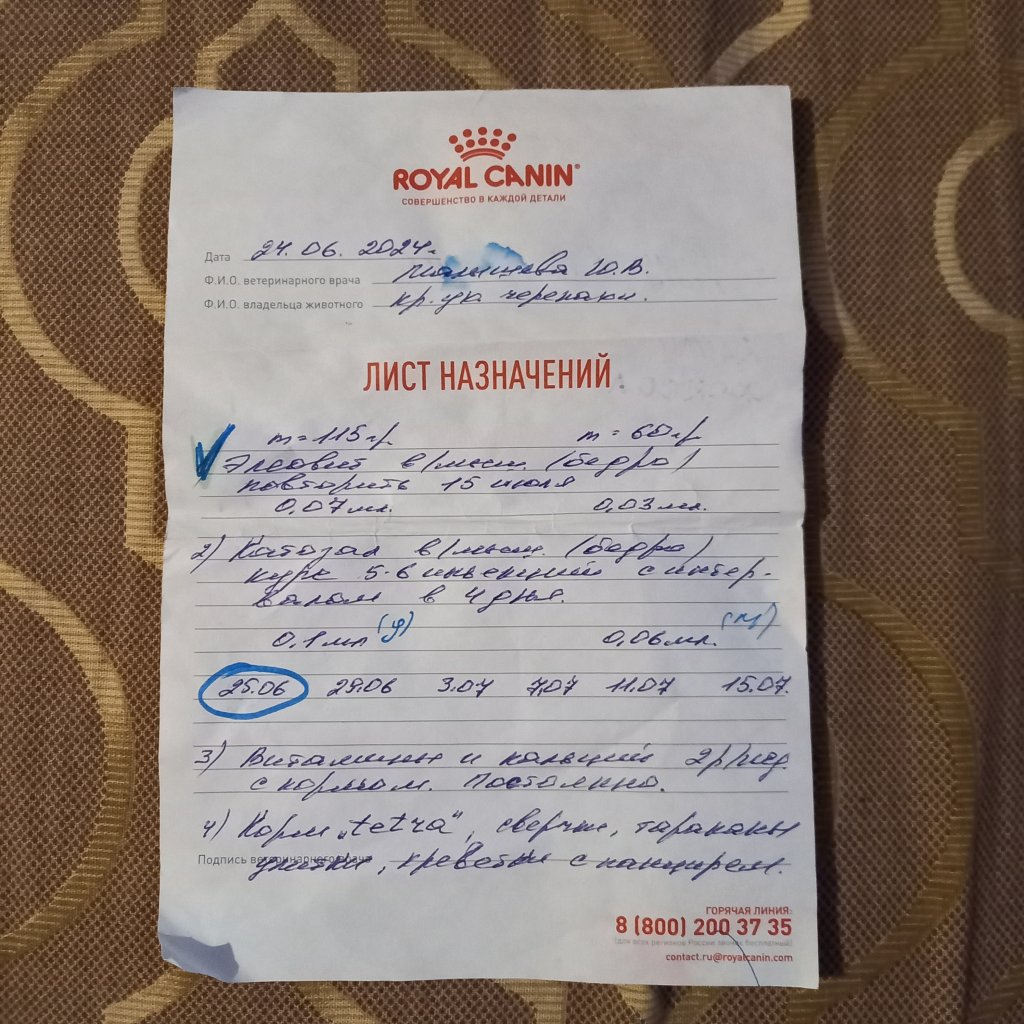 ROYAL CANIN®
СОВЕРШЕНСТВО В КАЖДОЙ ДЕТАЛИ
Дата 24.06.2024г.
Ф.И.О. ветеринарного врача Ю.В.
Ф.И.О. владельца животного кр.ух черепахи.
ЛИСТ НАЗНАЧЕНИЙ
m=115гр m=60гр
Элеовит в/мыш. (бедро)
повторить 15 июля
0,07мл. 0,03мл.
2) Катозал в/мыш. (бедро)
курс 5-6 инъекций с интер-
валом в 4 дня.
0,1мл 0,06мл.
25.06 29.06 3.07 7.07 11.07 15.07.
3) Витамины и кальций 2р/нед
с кормом. Постоянно.
4) Корм „tetra", сверчки, тараканы
Подпись ветеринарного врача
улитки, креветки с панцирем.
ГОРЯЧАЯ ЛИНИЯ:
8 (800) 200 37 35
(для всех регионов России звонок бесплатный)
contact.ru@royalcanin.com